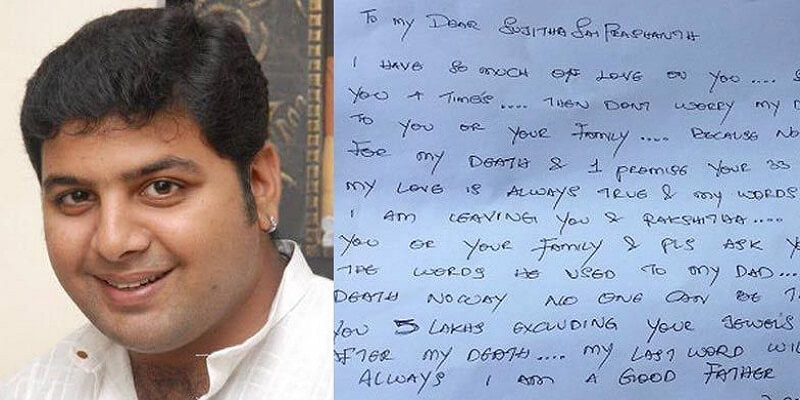 To my DEAR SUJITHA SAI PRASHANTH
I HAVE SO MUCH OF LOVE ON YOU ....
YOU 4 TIMES .... THEN DONT WORRY MY
TO YOU OR YOUR FAMILY .... BECAUSE NO
FOR MY DEATH & I PROMISE YOUR 33
MY LOVE IS ALWAYS TRUE & MY WORDS
I AM LEAVING YOU & RAKSHITHA ....
YOU OR YOUR FAMILY & PLS ASK
THE WORDS HE USED TO MY DAD ...
DEATH NOWAY NO ONE CAN BE
YOU 5 LAKHS EXCLUDING YOUR JEWELS
AFTER MY DEATH .... MY LAST WORD
ALWAYS I AM A GOOD FATHER